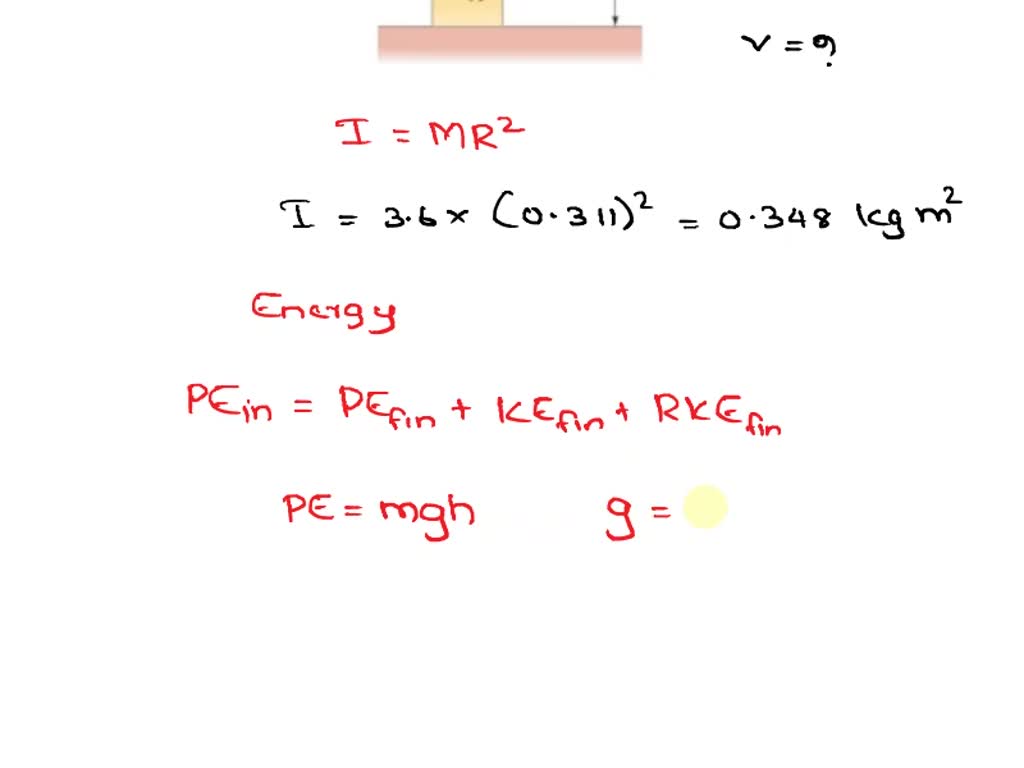 v = ?
I = MR²
I = 3.6 x (0.311)² = 0.348 kg m²
Energy
PEin = PEfin + KEfin + RKEfin
PE = mgh g =